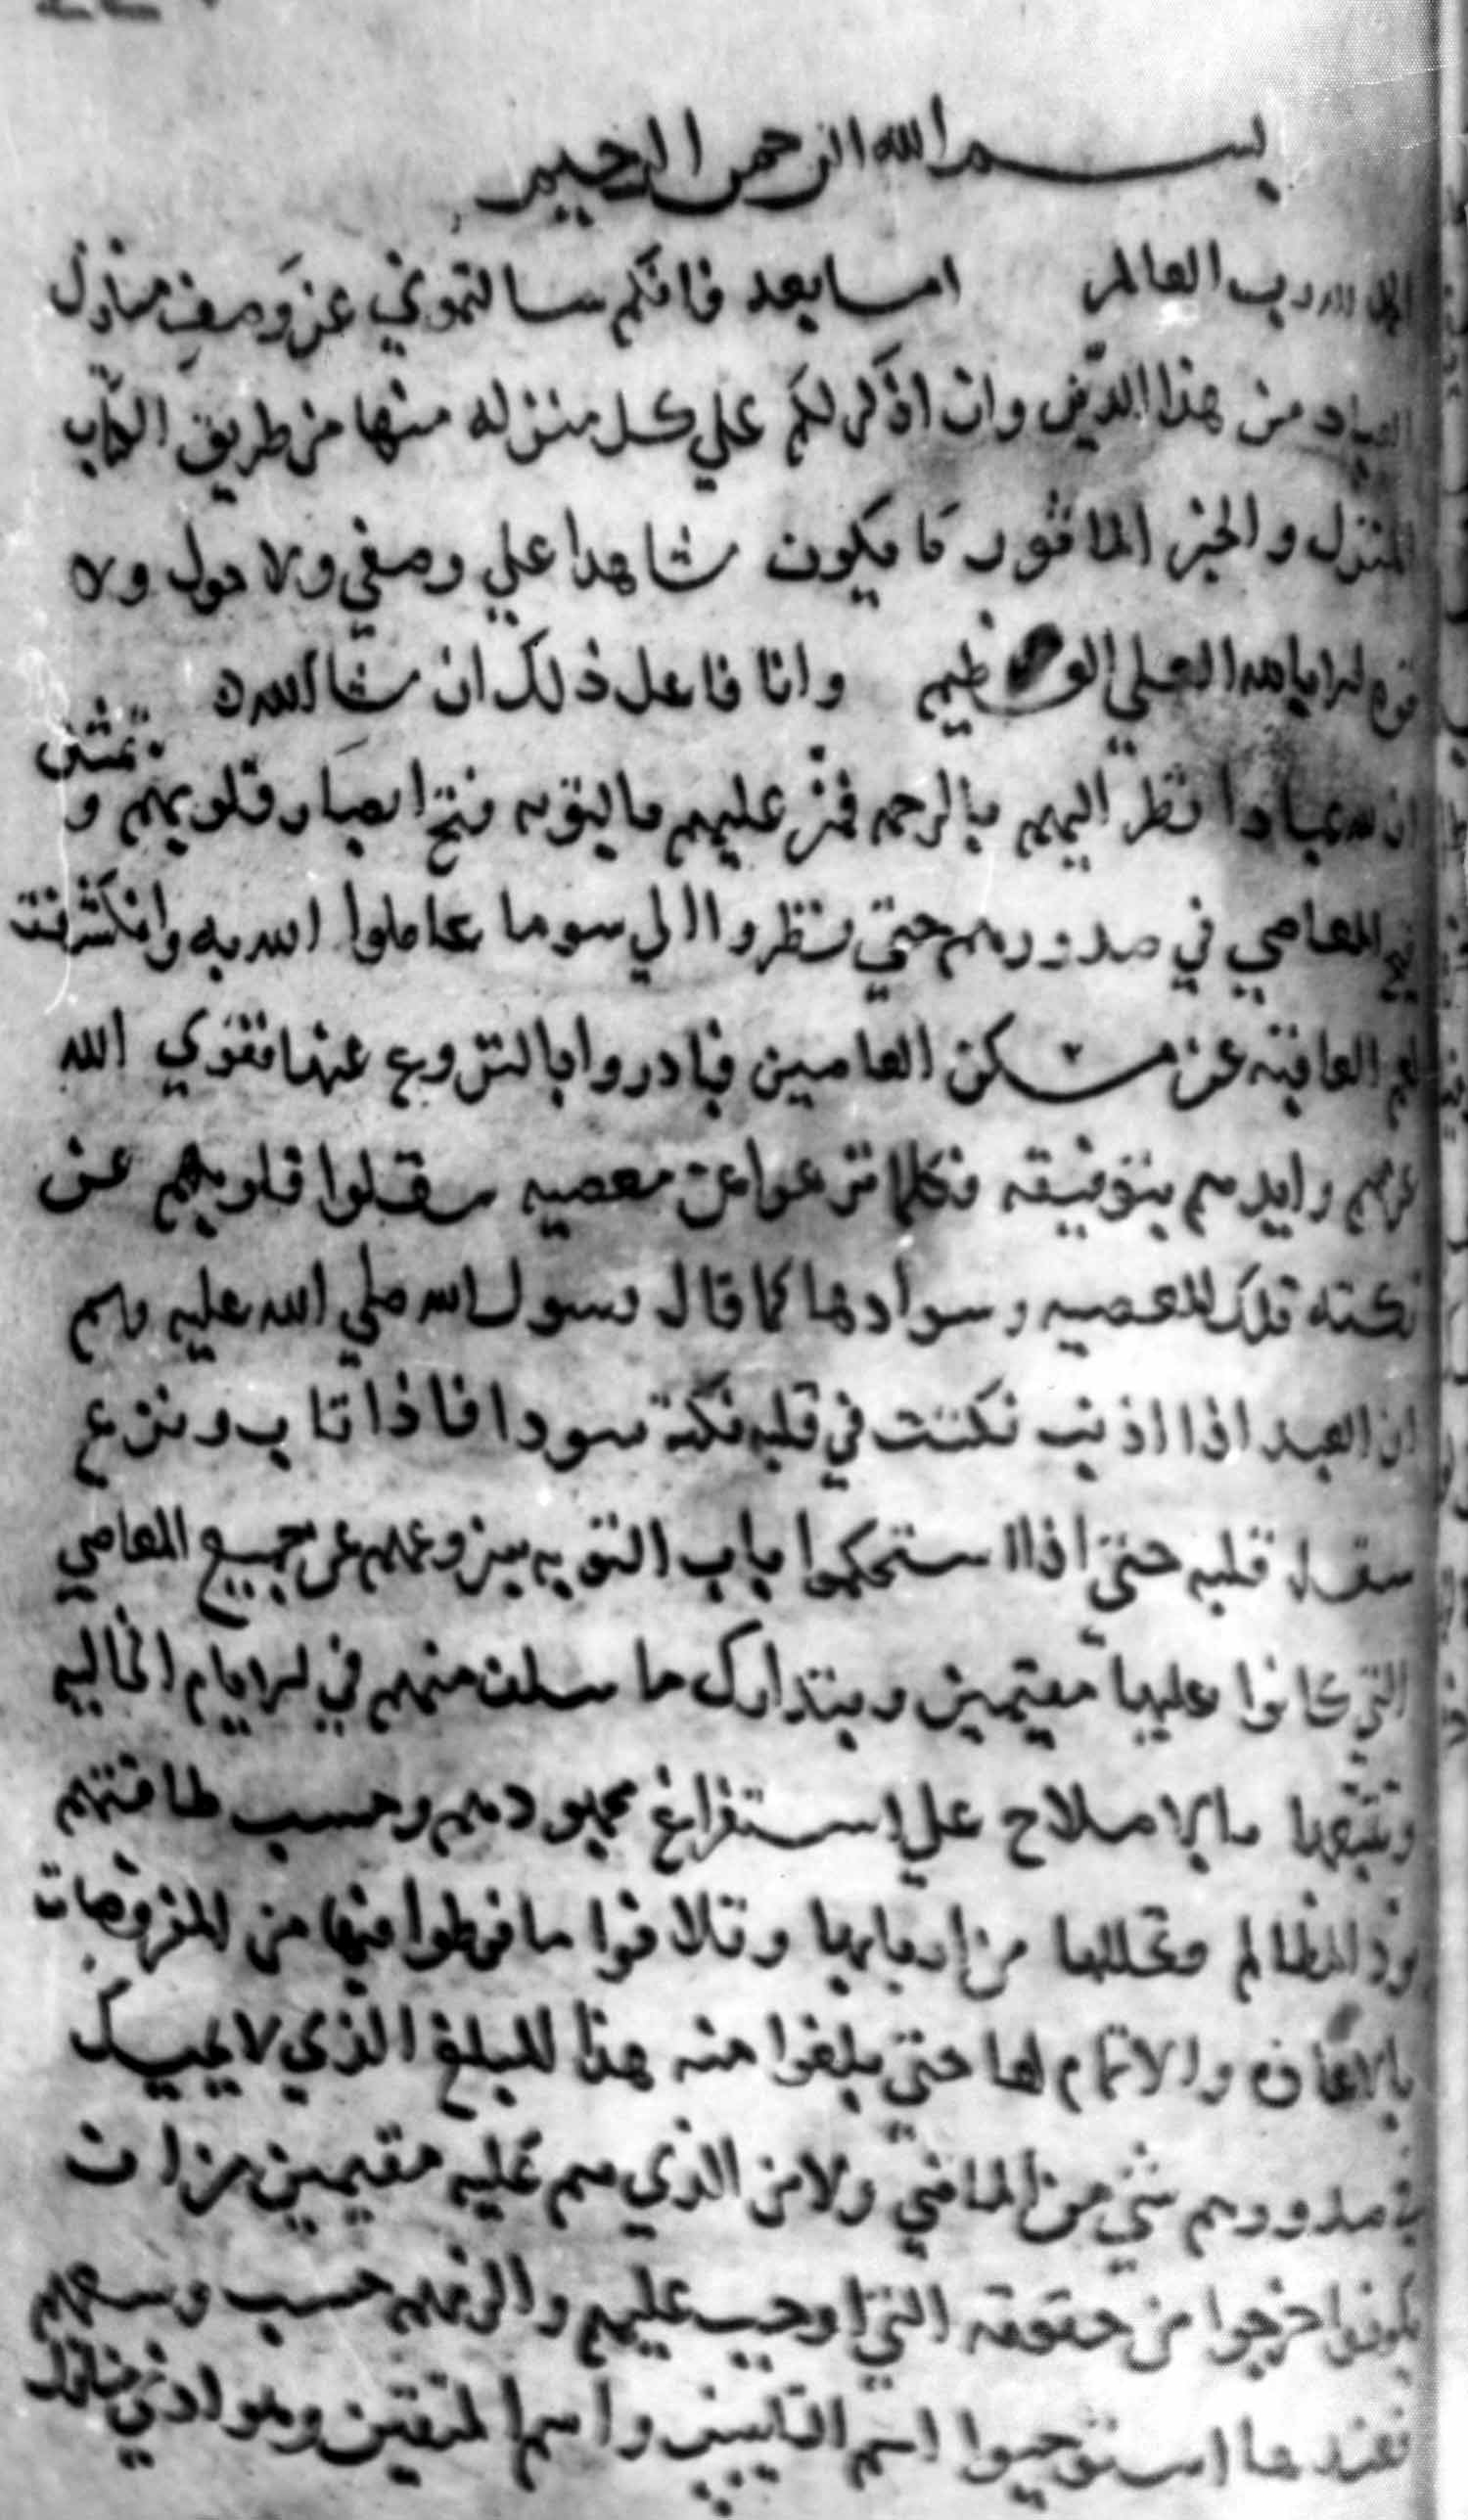 بسم الله الرحمن الرحيم
الحمد لله رب العالمين اما بعد فانكم سالتموني عن وصف منازل
العباد من هذا الدين وان اذكر لكم علي كل منزله منها من طريق الكتاب
المنزل والخبر الماثور ما يكون شاهدا علي وصفي ولا حول ولا
قوه الا بالله العلي العظيم وانا فاعل ذلك ان شا الله
ان لله عبادا نظر اليهم بالرحمه فمن عليهم بالتوبه فتح ابصار قلوبهم و
المعاصي في صدورهم حتي نظروا الي سو ما عاملوا الله به وانكشفت
لهم العاقبه عن مسكن العاصين فبادروا بالنزوع عنها فقوي الله
عزمهم وايدهم بتوفيقه فكلما نزعوا عن معصيه سقلوا قلوبهم عن
نكته تلك المعصيه وسوادها كما قال رسول الله صلي الله عليه وسلم
ان العبد اذا اذنب نكتت في قلبه نكته سودا فاذا تاب ونزع
سقل قلبه حتي اذا استحكموا باب التوبه بنزوعهم عن جميع المعاصي
التي كانوا عليها مقيمين وبتدارك ما سلف منهم في الايام الخاليه
وتتبعها بالاصلاح علي استفراغ مجهودهم وحسب طاقتهم
ورد المظالم وتحللها من اربابها وتلافوا ما فرطوا فيها من المفروضات
والاتمام لها حتي بلغوا منه هذا المبلغ الذي لا يحيك
في صدورهم شي من الماضي ولا من الذي هم عليه مقيمين من ان
يكونوا خرجوا من حقوقه التي اوجب عليهم والزمهم حسب وسعهم
فعندها استوجبوا اسم التايبين واسم المتقين وهو ادني منازل